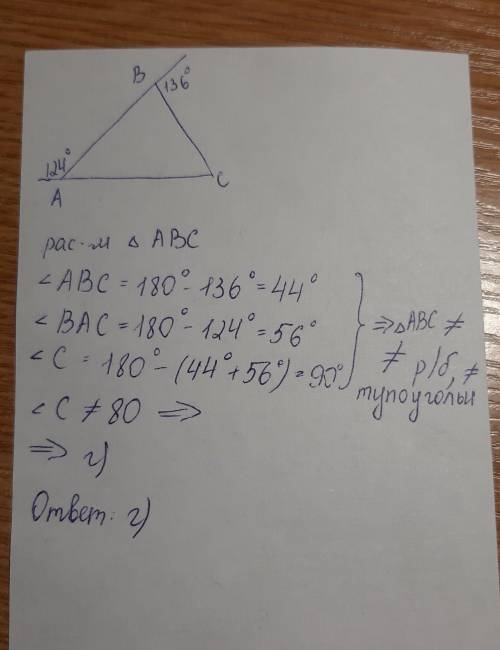 B
136°
124°
A
C
рас-м △ ABC
∠ABC = 180° - 136° = 44°
∠BAC = 180° - 124° = 56°
∠C = 180° - (44° + 56°) = 90°
⇒ △ABC ≠
≠ р/б, ≠
тупоугольн
∠C ≠ 80 ⇒
⇒ г)
Ответ: г)